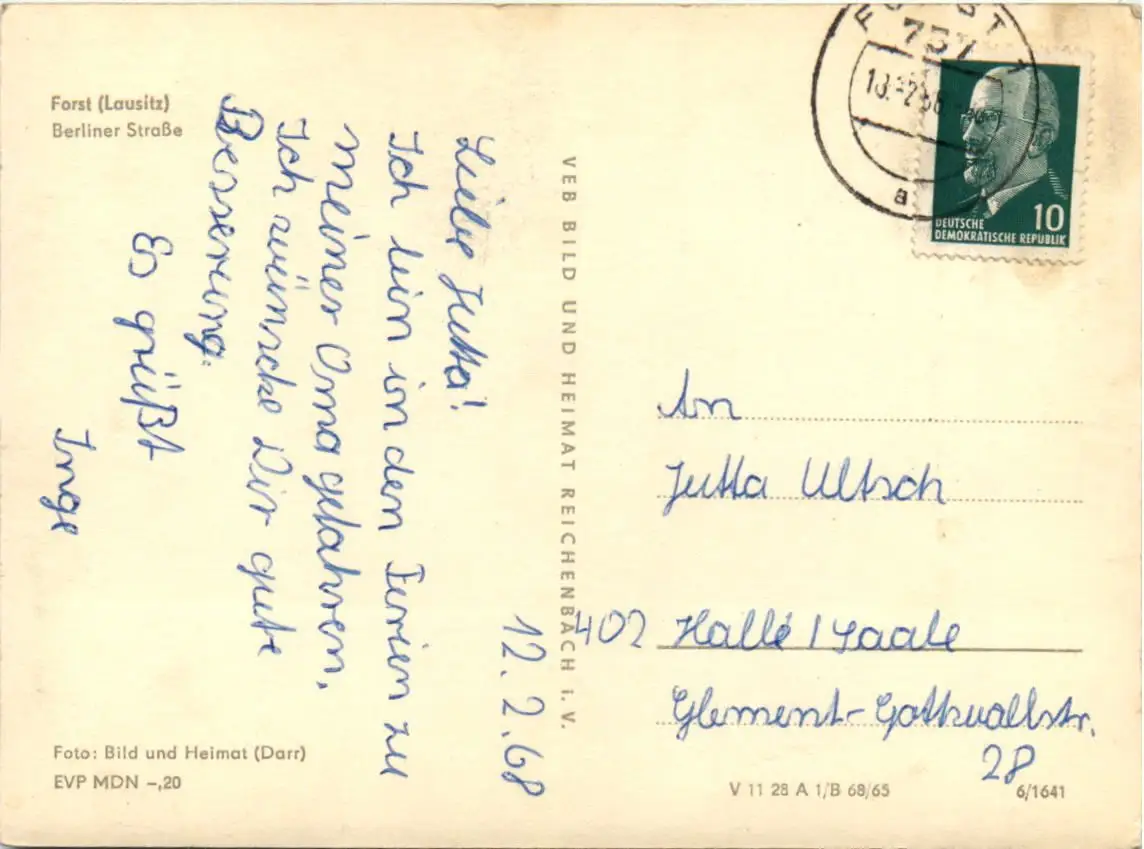 Forst (Lausitz)
Berliner Straße
12.2.68
Liebe Jutta!
Ich bin in den Ferien zu
meiner Oma gefahren.
Ich wünsche Dir gute
Besserung.
Es grüßt
Inge
Foto: Bild und Heimat (Darr)
EVP MDN -,20
VEB BILD UND HEIMAT REICHENBACH i. V.
FORST 1
757
13.-2.68
a
10
DEUTSCHE
DEMOKRATISCHE REPUBLIK
An
Jutta Ultsch
402 Halle / Saale
Glement-Gottwallstr.
28
V 11 28 A 1/B 68/65
6/1641